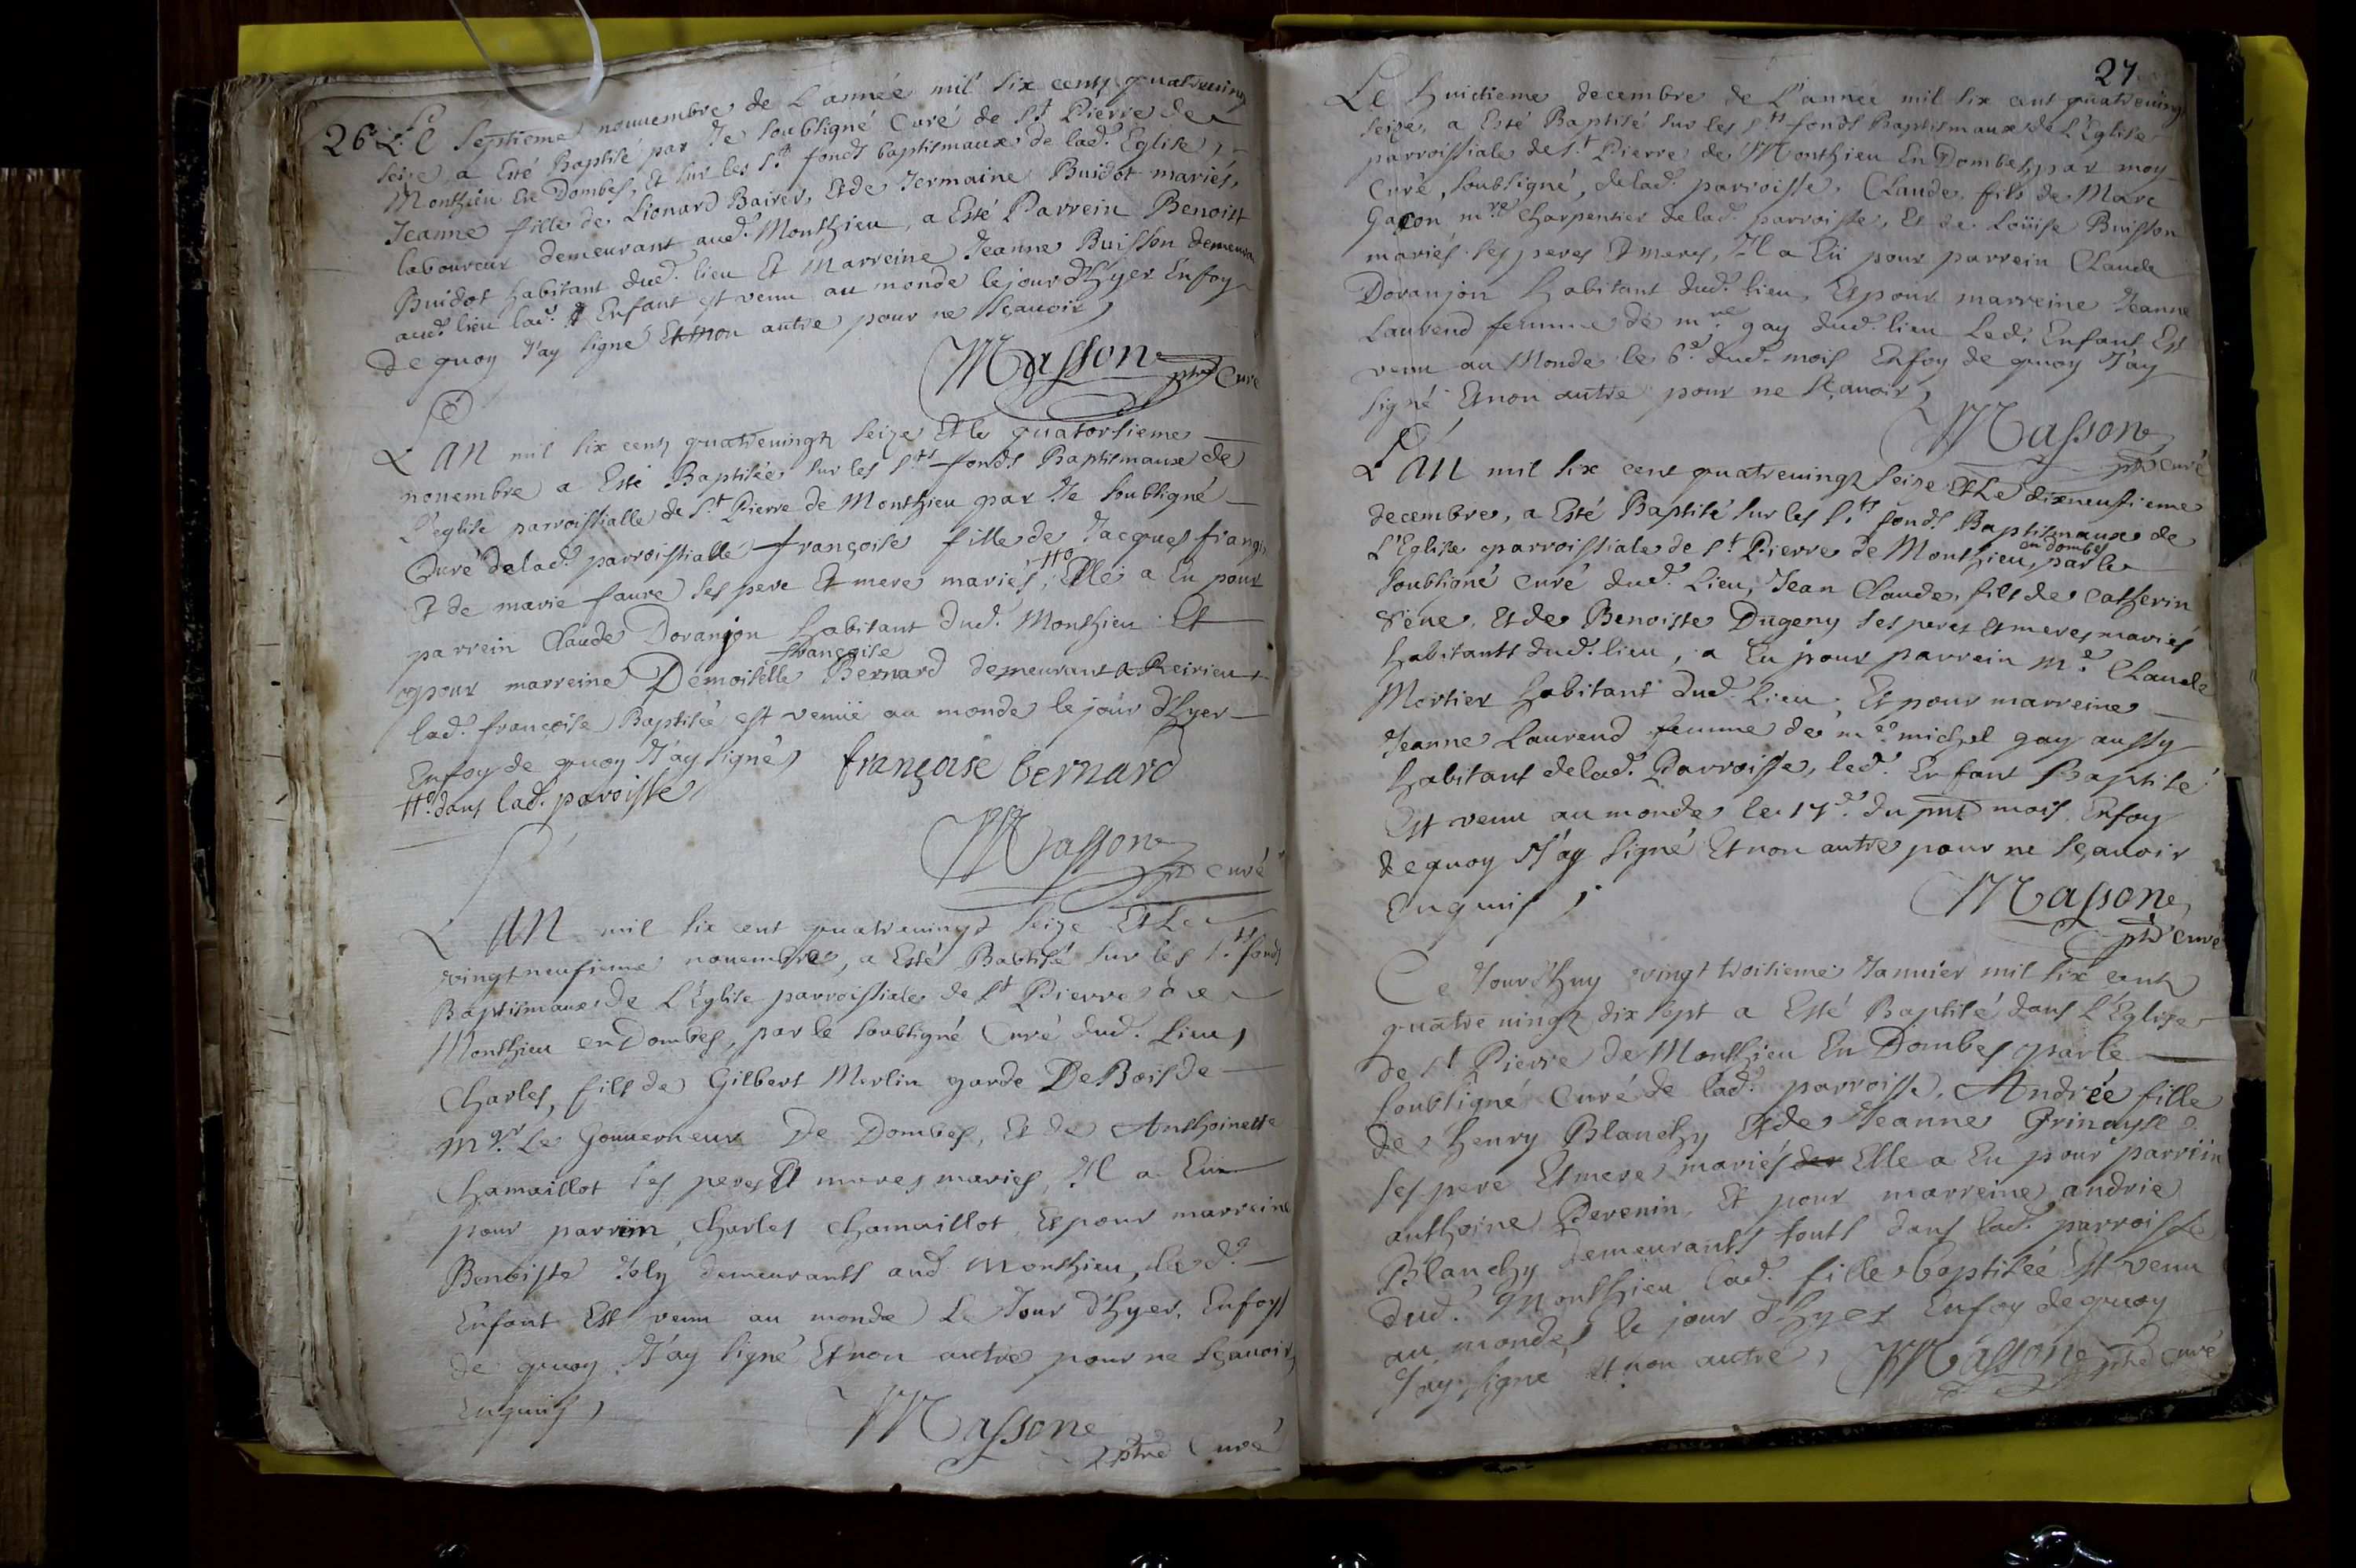 26
Le Septieme nouuembre de L'année mil six cents quatreuingt
seize a Esté Baptisé par Je soubsigné Curé de St Pierre de
Monthieu En Dombes, Et sur les Sts fonds baptismaux de lad. Eglise,
Jeanne fille de Lionard Baires, Et de Jermaine Buidot mariés,
laboureur demeurant aud. Monthieu, a Esté Parrein Benoist
Buidot habitant dud. lieu Et Marreine Jeanne Buisson demeurant
aud. lieu lad. Enfant est venu au monde le jour d'hyer Enfoy
de quoy J'ay signé Et non autre pour ne sçauoir,
Masson ptre Curé
L'An mil six cents quatreuingt seize Et le quatorsieme
nouembre a Esté Baptisée sur les Sts fonds Baptismaux de
L'eglise parroissialle de St Pierre de Monthieu par Je soubsigné
Curé de lad. parroissialle françoise fille de Jacques
Et de marie faure ses pere Et mere mariés, Elle a Eu pour
parrein Claude Doranjon habitant dud. Monthieu Et
françoise
pour marreine Demoiselle Bernard demeurant a Reirieu
lad. françoise Baptisée est venüe au monde le jour d'hyer
Enfoy de quoy J'ay signé, françoise bernard
dans lad. paroisse
Masson
ptre curé
L'An mil six cent quatreuingt seize Et Le
vingtneufieme nouembre, a Esté Babtisé sur les Sts fonds
Baptismaux de L'Eglise parroissiale de St Pierre de
Monthieu en Dombes, par le soubsigné Curé dud. Lieu,
Charles, fils de Gilbert Merlin garde De Bois de
Mgr. Le Gouuerneur De Dombes, Et de Anthoinette
Chamaillot ses peres Et meres mariés, Il a Eu
pour parrein, Charles Chamaillot, Et pour marreine
Benoiste Joly demeurants aud Monthieu, led.
Enfant Est venu au monde Le Jour d'hyer, Enfoy
de quoy J'ay signé Et non autre pour ne sçauoir,
Enquis,
Masson
ptre Curé
27
Le huictieme decembre de L'annee mil six cent quatreuingt
seize, a Esté Baptisé sur les Sts fonds Baptismaux de L'Eglise
parroissiale de St Pierre de Monthieu En Dombes par moy
Curé, soubsigné, de lad. parroisse, Claude, fils de Marc
Gacon mre Charpentier de lad. parroisse, Et de Loüise Buisson
mariés ses peres Et meres, Il a Eü pour parrein Claude
Doranjon habitant dud. lieu, Et pour marreine Jeanne
Laurend femme de mre gay dud. lieu Led. Enfant Est
venu au Monde le 6e dud. mois Enfoy de quoy J'ay
signé Et non autre pour ne sçauoir,
Masson
ptre curé
L'An mil six cent quatreuingt seize Et Le dixneufieme
decembre, a Esté Baptisé sur les Sts fonds Baptismaux de
en dombes
L'Eglise parroissiale de St Pierre de Monthieu, par le
soubsigné curé dud. Lieu, Jean Claude, fils de Catherin
Et de Benoiste Dugeny ses peres et meres mariés
habitants dud. lieu, a Eu pour parrein Me. Claude
Mortier habitant dud. Lieu, Et pour marreine
Jeanne Laurend femme de me. michel gay aussy
habitant de lad. Parroisse, led. Enfant Baptisé
Est venu au monde le 17e. du pnt mois, Enfoy
de quoy J'ay signé Et non autre pour ne sçauoir
Enquis,
Masson
ptre curé
Ce Jourdhuy vingt troisieme Januier mil six cents
quatreuingt dix sept a Esté Baptisé dans L'Eglise
de St Pierre de Monthieu En Dombes par le
soubsigné Curé de lad. parroisse, Andrée fille
de henry Blanchy Et de Jeanne
ses pere Et mere mariés Elle a Eu pour parrein
anthoine Perenin, Et pour marreine andrie
Blanchy demeurants touts dans lad. parroisse
dud. Monthieu lad. fille baptisée Est venu
au monde le jour d'hyer Enfoy de quoy
J'ay signé et non autre, Masson ptre curé